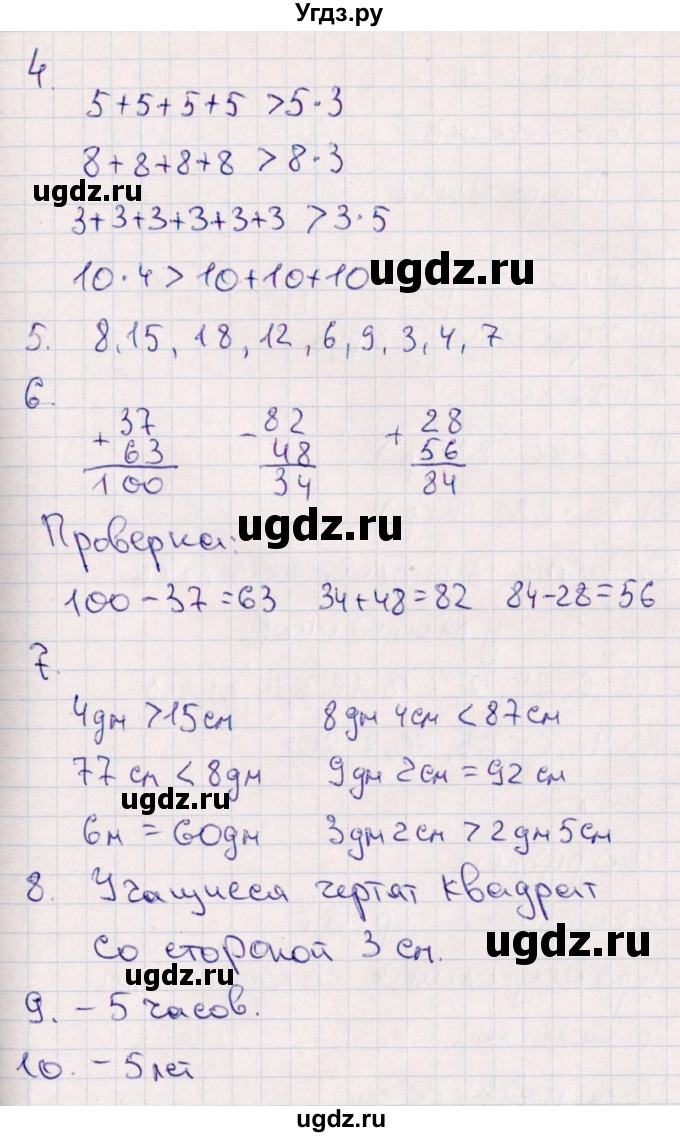 Угдз.ру
4.
5+5+5+5 >5·3
8+8+8+8 > 8·3
ugdz.ru
3+3+3+3+3+3 > 3·5
10·4 > 10+10+10
ugdz.ru
5. 8,15, 18, 12, 6, 9, 3, 4, 7
6.
+ 37 - 82 + 28
63 48 56
100 34 84
Проверка:
ugdz.ru
100-37=63 34+48=82 84-28=56
7.
4дм >15см 8дм 4см < 87см
77 см < 8дм 9дм 2см = 92 см
ugdz.ru
6м = 60дм 3дм2см > 2дм 5см
8. Учащиеся чертят квадрат
со стороной 3 см.
ugdz.ru
ugdz.ru
9. - 5 часов.
10. - 5 лет
ugdz.ru